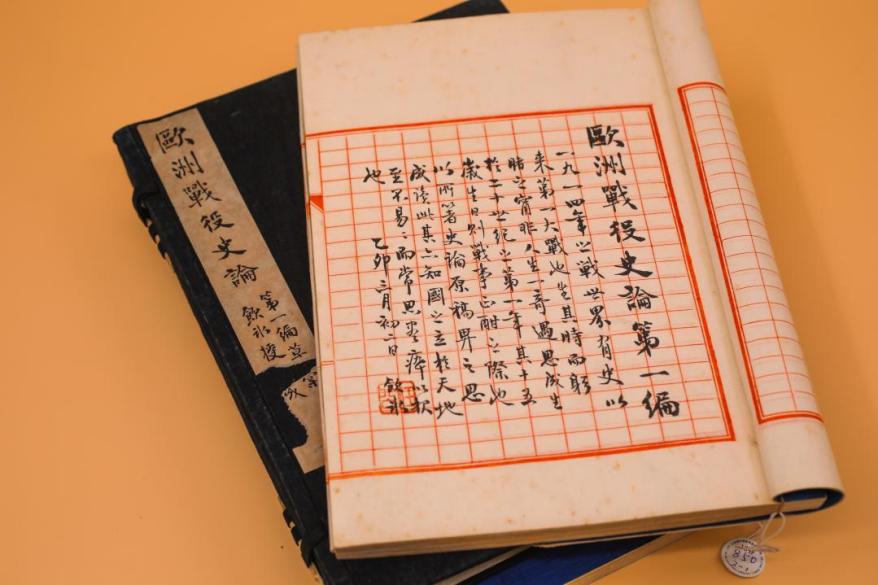 歐洲戰役史論第一編
一九一四年之戰世界有史以
來第一大戰也生其時而躬
睹之寧非人生一奇遇思成生
於二十世紀之第一年其十五
歲生日則戰事正酣之際也
以所著史論原稿畀之思
成讀此其亦知國之立於天地
至不易〻而常思盡瘁以報
也 乙卯三月初二日 飲冰
歐洲戰役史論
第一編草
飲冰授
850
2-1